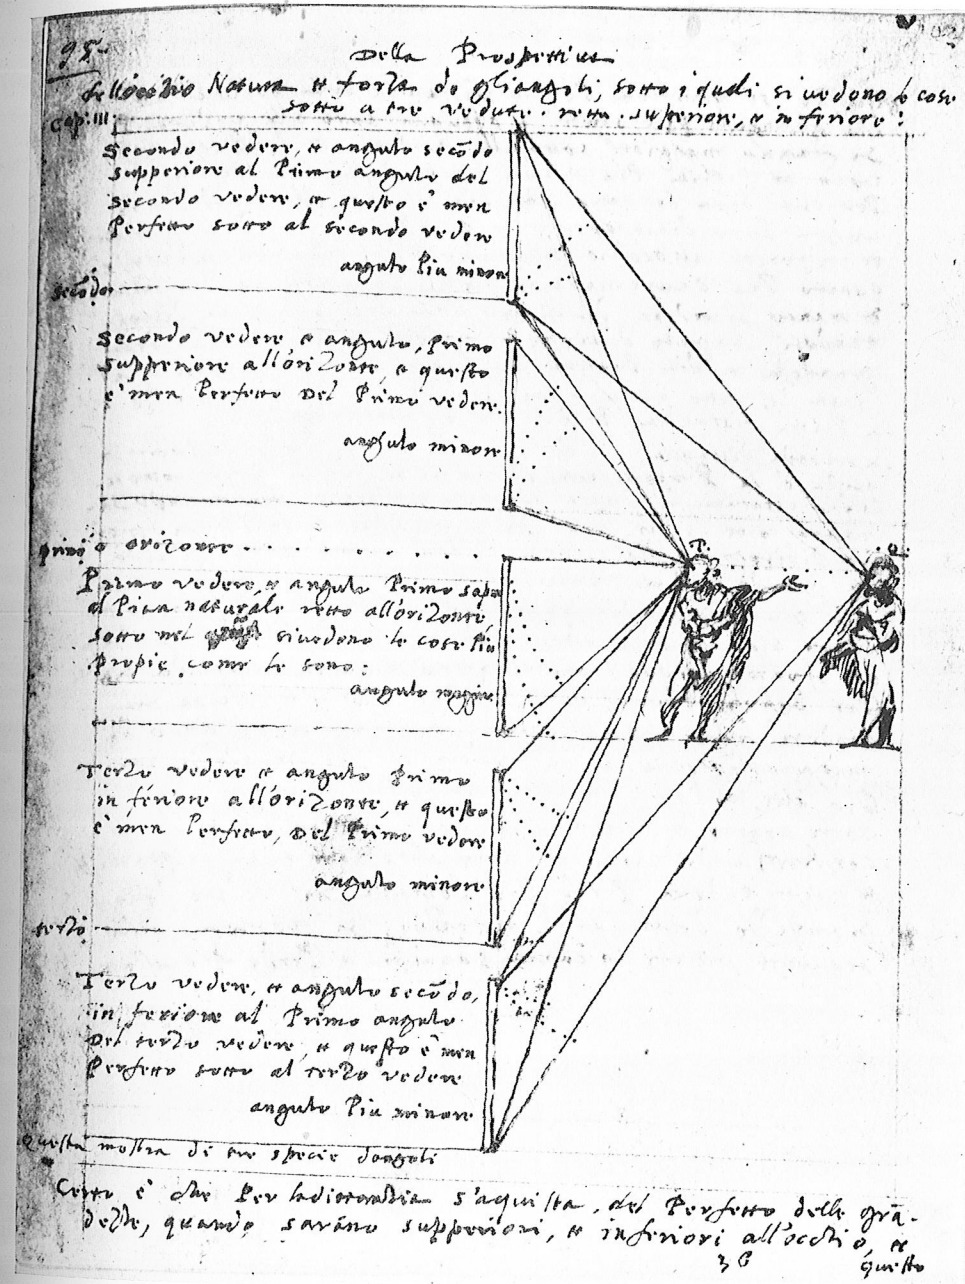 95.
Della Prospettiva
dell'occhio Natura et forza de gliangoli, sotto i quali si vedono le cose
Cap: III. sotto a tre vedute. retta. superiore, et inferiore:
Secondo vedere, et angulo secōdo
supperiore al Primo angulo del
secondo vedere, et questo è men
Perfetto sotto al secondo vedere
angulo Piu minore
secōdo
Secondo vedere, et angulo, Primo
supperiore all'orizonte, et questo
è men Perfetto Del Primo vedere.
angulo minore
primo orizonte
T. a
Primo vedere, et angulo Primo sopra
al Pian naturale retto all'orizonte,
sotto nel si vedono le cose Piu
propie come le sono:
angulo maggiore
Terzo vedere et angulo Primo
inferiore all'orizonte, et questo
è men Perfetto, Del Primo vedere
angulo minore
terzo
Terzo vedere, et angulo secōdo,
inferiore al Primo angulo
Del terzo vedere, et questo è men
Perfetto sotto al terzo vedere
angulo Piu minore
Questa mostra di tre specie d'angoli
Certo è che Per s'aquista, del Perfetto delle grā-
dezze, quando sarāno supperiori, et inferiori all'occhio, et
36 questo